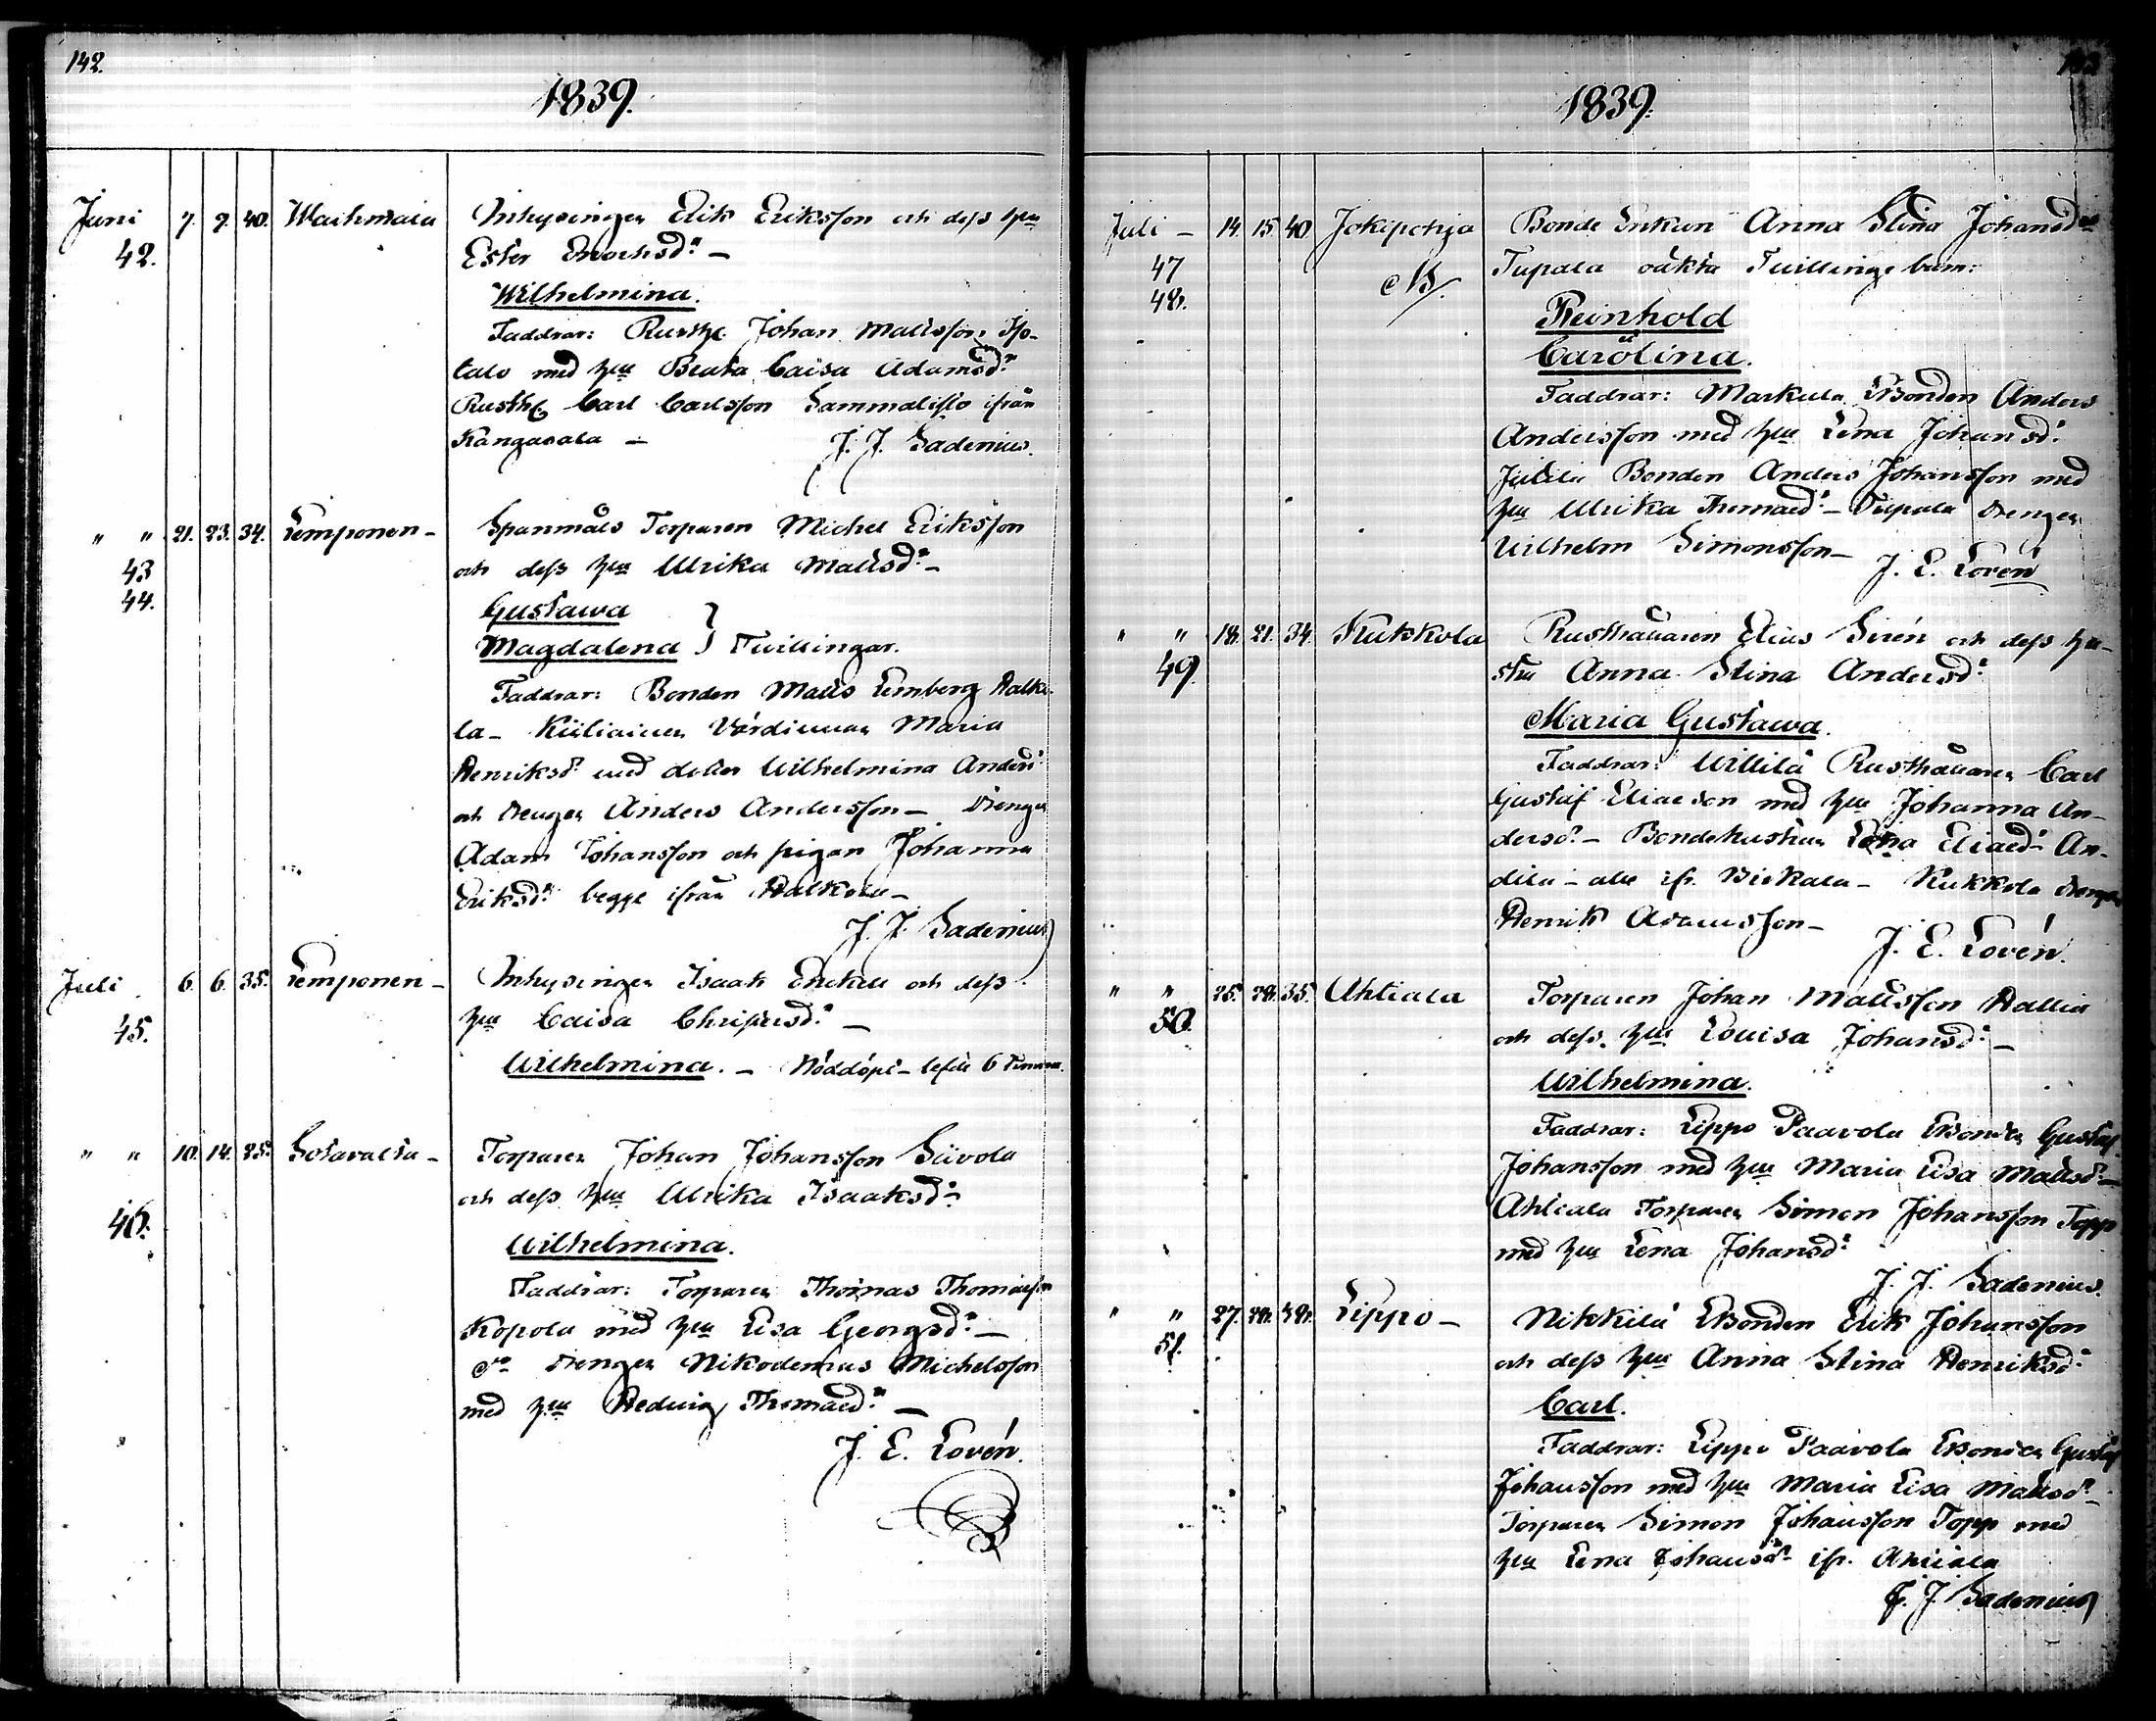 142.
1839.
Juni 7. 9. 40. Waihmaia Inhysingen Erik Eriksson och dess hu
42. Ester Enochsdr –
Wilhelmina.
Faddrar: Rusth. Johan Mattsson Iso-
talo med hu Beata Caisa Adamsdr
Rusth. Carl Carlsson Sammalisto ifrån
Kangasala – J. J. Sadenius.
" " 21. 23. 34. Lemponen – Spanmåls Torparen Michel Eriksson
43 och dess hu Ulrika Mattsdr –
44. Gustawa
Magdalena } Tvillingar.
Faddrar: Bonden Matts Lemberg Halko-
la – Värdinnan Maria
Henriksdr med dotter Wilhelmina Andersdr
och Drengen Anders Andersson – Drengen
Adam Johansson och pigan Johanna
Eriksdr begge ifrån Halkola –
J. J. Sadenius
Juli 6. 6. 35. Lemponen – Inhysingen Isaak och dess
45. hu Caisa Christersdr –
Wilhelmina. – Nöddöpt – lefde 6 Timmar.
" " 10. 14. 25. Sotavalta – Torparen Johan Johansson Siivola
46. och dess hu Ulrika Isaaksdr
Wilhelmina.
Faddrar: Torparen Thomas Thomasson
Kopola med hu Lisa Georgsdr –
do Drengen Nikodemus Michelsson
med hu Hedwig Thomaedr –
J. E. Lovén.
143
1839.
Juli – 14. 15. 40 Jokipohja Bonde Enkan Anna Stina Johansdr
47 Tupala oäkta Tvillinge barn:
48. Reinhold
Carolina.
Faddrar: Markula Bonden Anders
Andersson med hu Lena Johansd:
Bonden Anders Johansson med
hu Ulrika Thomaed: – Tupala Drengen
Wilhelm Simonsson – J. E. Lovén
" " 18. 21. 34. Kukkola Rusthållaren Elias Sirén och dess hu-
49 stru Anna Stina Andersd:
Maria Gustawa.
Faddrar: Willilä Rusthållaren Carl
Gustaf Eliaeson med hu Johanna An-
dersdr – Bondehustrun Lena Eliaedr An-
dila – alla ifr. Birkala – Kukkola Drengen
Henrik Adamsson –
J. E. Lovén.
" " 25. 28. 35. Ahtiala Torparen Johan Mattsson Hallia
50. och dess hu Louisa Johansd: –
Wilhelmina.
Faddrar: Lippo Paavola Bonden Gustaf
Johansson med hu Maria Lisa Mattsd: –
Ahtiala Torparen Simon Johansson Topp
med hu Lena Johansd:
J. J. Sadenius.
" " 27. 28. 38. Lippo – Nikkilä Bonden Erik Johansson
51. och dess hu Anna Stina Henriksd:
Carl.
Faddrar: Lippo Paavola Bonden Gustaf
Johansson med hu Maria Lisa Mattsdr
Torparen Simon Johansson Topp med
hu Lena Johansdr ifr. Ahtiala
J. J. Sadenius